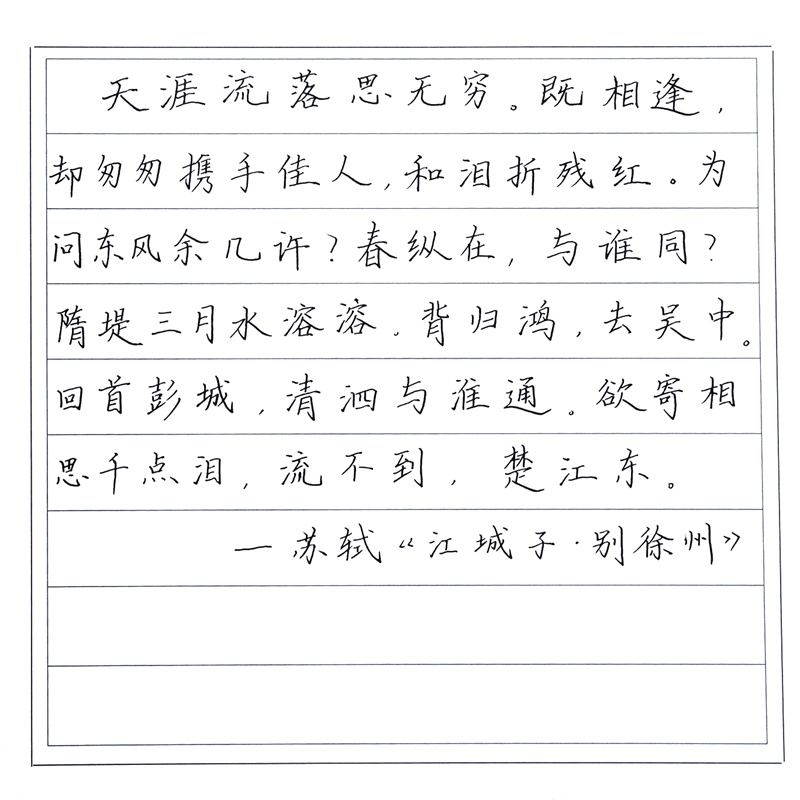 天涯流落思无穷。既相逢，
却匆匆携手佳人，和泪折残红。为
问东风余几许？春纵在，与谁同？
隋堤三月水溶溶．背归鸿，去吴中。
回首彭城，清泗与淮通。欲寄相
思千点泪，流不到，楚江东。
—苏轼《江城子·别徐州》